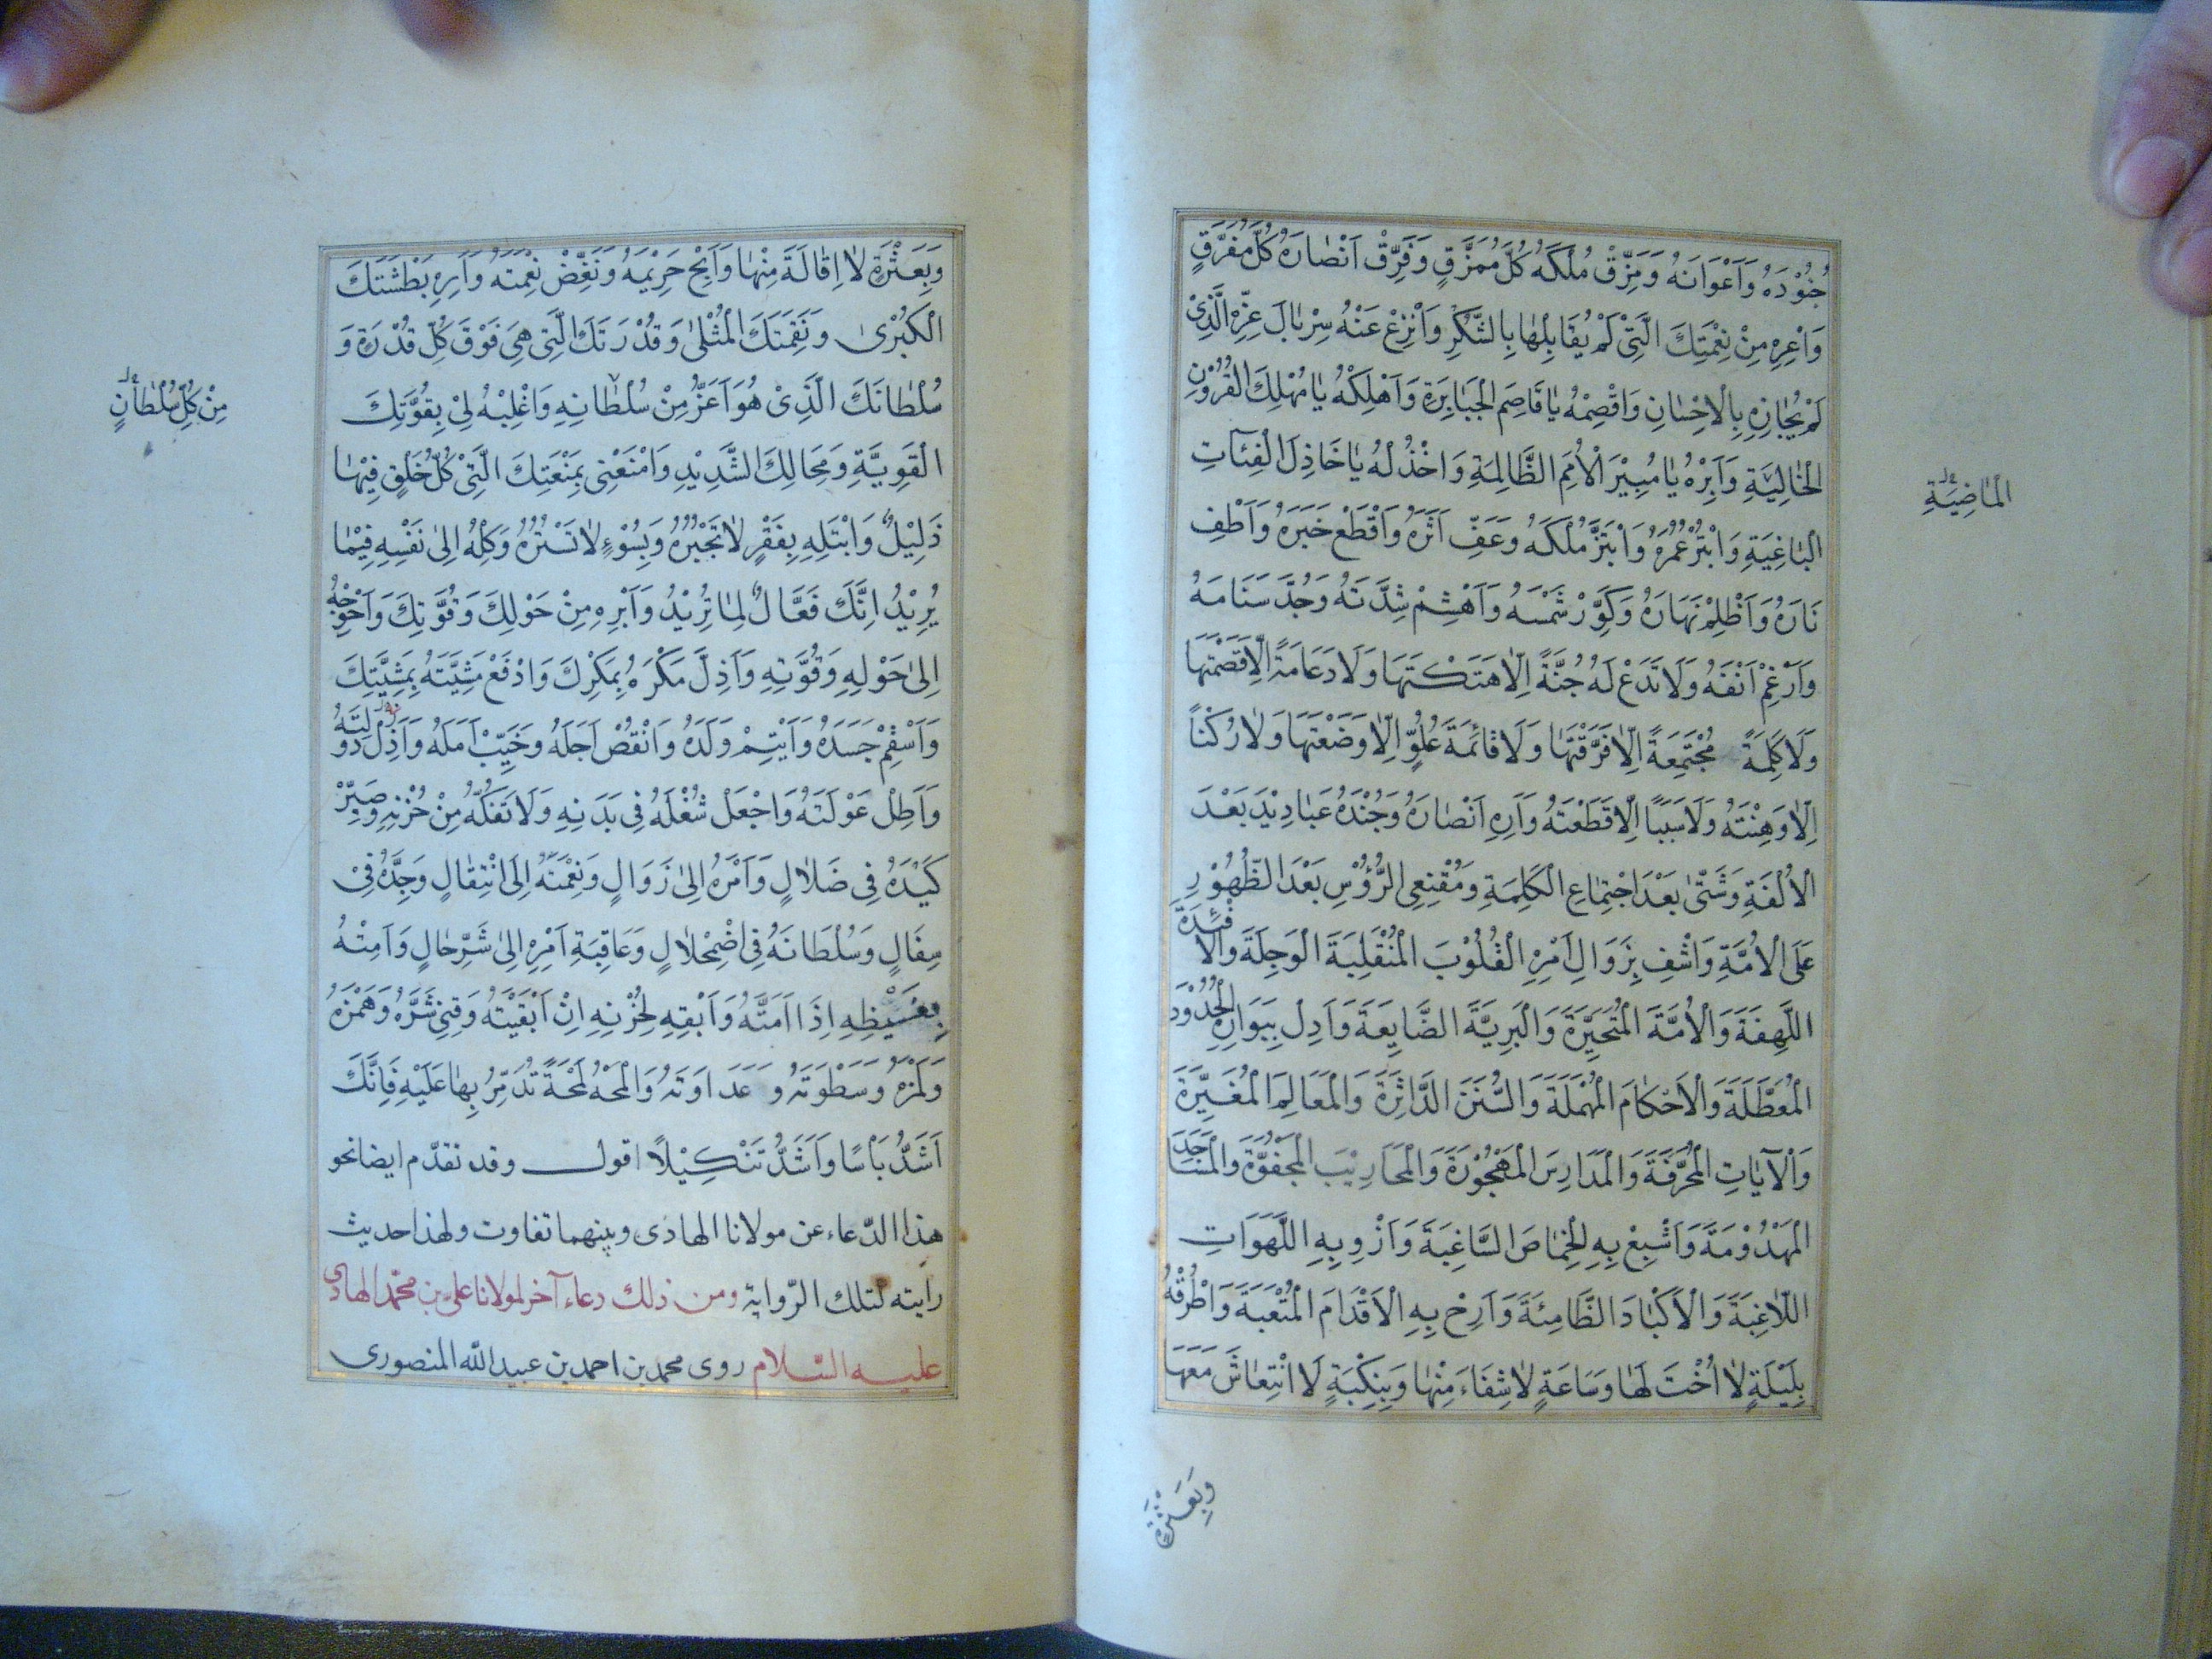 جُنُوْدَهُ وَاَعْوَانَهُ وَمَزِّقْ مُلْكَهُ كُلَّ مُمَزَّقٍ وَفَرِّقْ اَنْصَارَهُ كُلَّ مُفَرَّقٍ
وَاَعِرْهِ مِنْ نِعْمَتِكَ الَّتِيْ لَمْ يُقَابِلْهَا بِالشُّكْرِ وَاَنْزِعْ عَنْهُ سِرْبَالَ عِزِّهِ الَّذِيْ
لَمْ يُجَازِهِ بِالْاِحْسَانِ وَاقْصِمْهُ يَا قَاصِمَ الْجَبَابِرَةِ وَاَهْلِكْهُ يَا مُهْلِكَ الْقُرُوْنِ
الْخَالِيَةِ وَاَبِرْهُ يَا مُبِيْرَ الْاُمَمِ الظَّالِمَةِ وَاخْذُلْهُ يَا خَاذِلَ الْفِئَاتِ
الْمَاضِيَةِ
الْبَاغِيَةِ وَابْتُرْ عُمُرَهُ وَابْتَزَّ مُلْكَهُ وَعَفِّ اَثَرَهُ وَاقْطَعْ خَبَرَهُ وَاَطْفِ
نَارَهُ وَاَظْلِمْ نَهَارَهُ وَكَوِّرْ شَمْسَهُ وَاَهْشِمْ شِدَّتَهُ وَجُدَّ سَنَامَهُ
وَاَرْغِمْ اَنْفَهُ وَلَا تَدَعْ لَهُ جُنَّةً اِلَّا هَتَكْتَهَا وَلَا دَعَامَةً اِلَّا قَصَمْتَهَا
وَلَا كَلِمَةً مُجْتَمِعَةً اِلَّا فَرَّقْتَهَا وَلَا قَائِمَةَ عُلُوٍّ اِلَّا وَضَعْتَهَا وَلَا رُكْنًا
اِلَّا وَهَنْتَهُ وَلَا سَبَبًا اِلَّا قَطَعْتَهُ وَاَرِهِ اَنْصَارَهُ وَجُنْدَهُ عَبَادِيْدَ بَعْدَ
الْاُلْفَةِ وَشَتّٰى بَعْدَ اجْتِمَاعِ الْكَلِمَةِ وَمُقْنِعِي الرُّؤُسِ بَعْدَ الظُّهُوْرِ
عَلَى الْاُمَّةِ وَاشْفِ بِزَوَالِ اَمْرِهِ الْقُلُوْبَ الْمُنْقَلِبَةَ الْوَجِلَةَ وَالْاَفْئِدَةَ
اللَّهِفَةَ وَالْاُمَّةَ الْمُتَحَيِّرَةَ وَالْبَرِيَّةَ الضَّايِعَةَ وَاَدِلْ بِبَوَارِهِ الْحُدُوْدَ
الْمُعَطَّلَةَ وَالْاَحْكَامَ الْمُهْمَلَةَ وَالسُّنَنَ الدَّاثِرَةَ وَالْمَعَالِمَ الْمُغَيَّرَةَ
وَالْاٰيَاتِ الْمُحَرَّفَةَ وَالْمَدَارِسَ الْمَهْجُوْرَةَ وَالْمَحَارِيْبَ الْمَجْفُوَّةَ وَالْمَسَاجِدَ
الْمَهْدُوْمَةَ وَاَشْبِعْ بِهِ الْخِمَاصَ السَّاغِبَةَ وَاَرْوِ بِهِ اللَّهَوَاتِ
اللَّاغِبَةَ وَالْاَكْبَادَ الظَّامِئَةَ وَاَرِحْ بِهِ الْاَقْدَامَ الْمُتْعَبَةَ وَاطْرُقْهُ
بِلَيْلَةٍ لَا اُخْتَ لَهَا وَسَاعَةٍ لَا شِفَاءَ مِنْهَا وَبِنَكْبَةٍ لَا انْتِعَاشَ مَعَهَا
وَبِعَثْرَةٍ
وَبِعَثْرَةٍ لَا اِقَالَةَ مِنْهَا وَاَبِحْ حَرِيْمَهُ وَنَغِّضْ نِعْمَتَهُ وَاَرِهِ بَطْشَتَكَ
الْكُبْرٰى وَنَقِمَتَكَ الْمُثْلٰى وَقُدْرَتَكَ الَّتِي هِيَ فَوْقَ كُلِّ قُدْرَةٍ وَ
سُلْطَانَكَ الَّذِيْ هُوَ اَعَزُّ مِنْ سُلْطَانِهِ وَاغْلِبْهُ لِيْ بِقُوَّتِكَ
مِنْ كُلِّ سُلْطَانٍ
الْقَوِيَّةِ وَمِحَالِكَ الشَّدِيْدِ وَامْنَعْنِي بِمَنْعَتِكَ الَّتِيْ كُلُّ خَلْقٍ فِيْهَا
ذَلِيْلٌ وَابْتَلِهِ بِفَقْرٍ لَا تَجْبُرُهُ وَبِسُوْءٍ لَا تَسْتُرُهُ وَكِلْهُ اِلٰى نَفْسِهِ فِيْمَا
يُرِيْدُ اِنَّكَ فَعَّالٌ لِمَا تُرِيْدُ وَاَبْرِهِ مِنْ حَوْلِكَ وَقُوَّتِكَ وَاَحْوِجْهُ
اِلٰى حَوْلِهِ وَقُوَّتِهِ وَاَذِلَّ مَكْرَهُ بِمَكْرِكَ وَادْفَعْ مَشِيَّتَهُ بِمَشِيَّتِكَ
وَاَسْقِمْ جَسَدَهُ وَاَيْتِمْ وَلَدَهُ وَانْقُصْ اَجَلَهُ وَخَيِّبْ اَمَلَهُ وَاَذِلْ دَوْلَتَهُ
وَاَطِلْ عَوْلَتَهُ وَاجْعَلْ شُغْلَهُ فِي بَدَنِهِ وَلَا تَفُكَّهُ مِنْ حُزْنِهِ وَصَيِّرْ
كَيْدَهُ فِي ضَلَالٍ وَاَمْرَهُ اِلٰى زَوَالٍ وَنِعْمَتَهُ اِلَى انْتِقَالٍ وَجَدَّهُ فِيْ
سِفَالٍ وَسُلْطَانَهُ فِي اضْمِحْلَالٍ وَعَاقِبَةَ اَمْرِهِ اِلٰى شَرِّ حَالٍ وَاَمِتْهُ
بِغَيْظِهِ اِذَا اَمَتَّهُ وَاَبْقِهِ لِحُزْنِهِ اِنْ اَبْقَيْتَهُ وَقِنِي شَرَّهُ وَهَمْزَهُ
وَلَمْزَهُ وَسَطْوَتَهُ وَعَدَاوَتَهُ وَالْمَحْهُ لَمْحَةً تُدَمِّرُ بِهَا عَلَيْهِ فَاِنَّكَ
اَشَدُّ بَاْسًا وَاَشَدُّ تَنْكِيْلًا اقول وقد تقدّم ايضا نحو
هذا الدّعاء عن مولانا الهادى وبينهما تفاوت ولهذا حديث
رايته لتلك الرّواية ومن ذلك دعاء آخر لمولانا على بن محمّد الهادى
عليه السّلام روى محمد بن احمد بن عبيد الله المنصورى